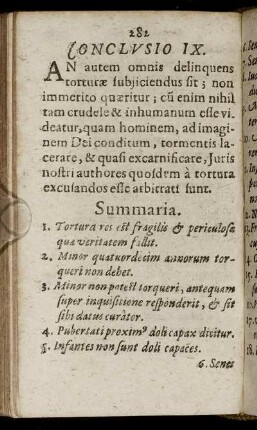 282
CONCLVSIO IX.
AN autem omnis delinquens
torturæ subjiciendus sit; non
immerito quæritur; cũ enim nihil
tam crudele & inhumanum esse vi-
deatur, quam hominem, ad imagi-
nem Dei conditum, tormentis la-
cerare, & quasi excarnificare, Juris
nostri authores quosdẽm à tortura
excusandos esse arbitrati sunt.
Summaria.
1. Tortura res est fragilis & periculosa
qua veritatem fallit.
2. Minor quatuordecim annorum tor-
queri non debet.
3. Minor non potest torqueri, antequam
super inquisitione responderit, & sit
sibi datus curàtor.
4. Pubertati proxim9 doli capax dicitur.
5. Infantes non sunt doli capaces.
6. Senes